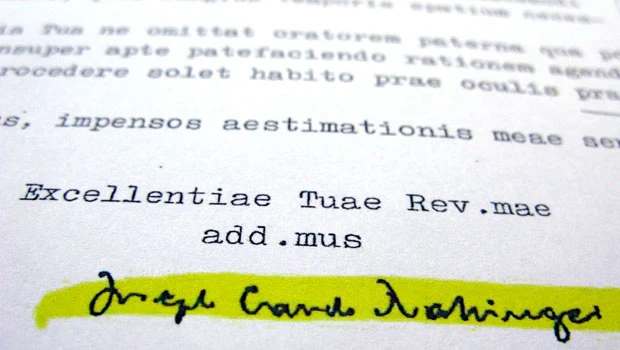 temporis spatium
ia Tua ne omittat oratorem paterne qua
nsuper apte patefaciendo rationem agend
rocedere solet habito prae oculis pra
s, impensos aestimationis meae sen
Excellentiae Tuae Rev.mae
add.mus
Joseph Card. Ratzinger